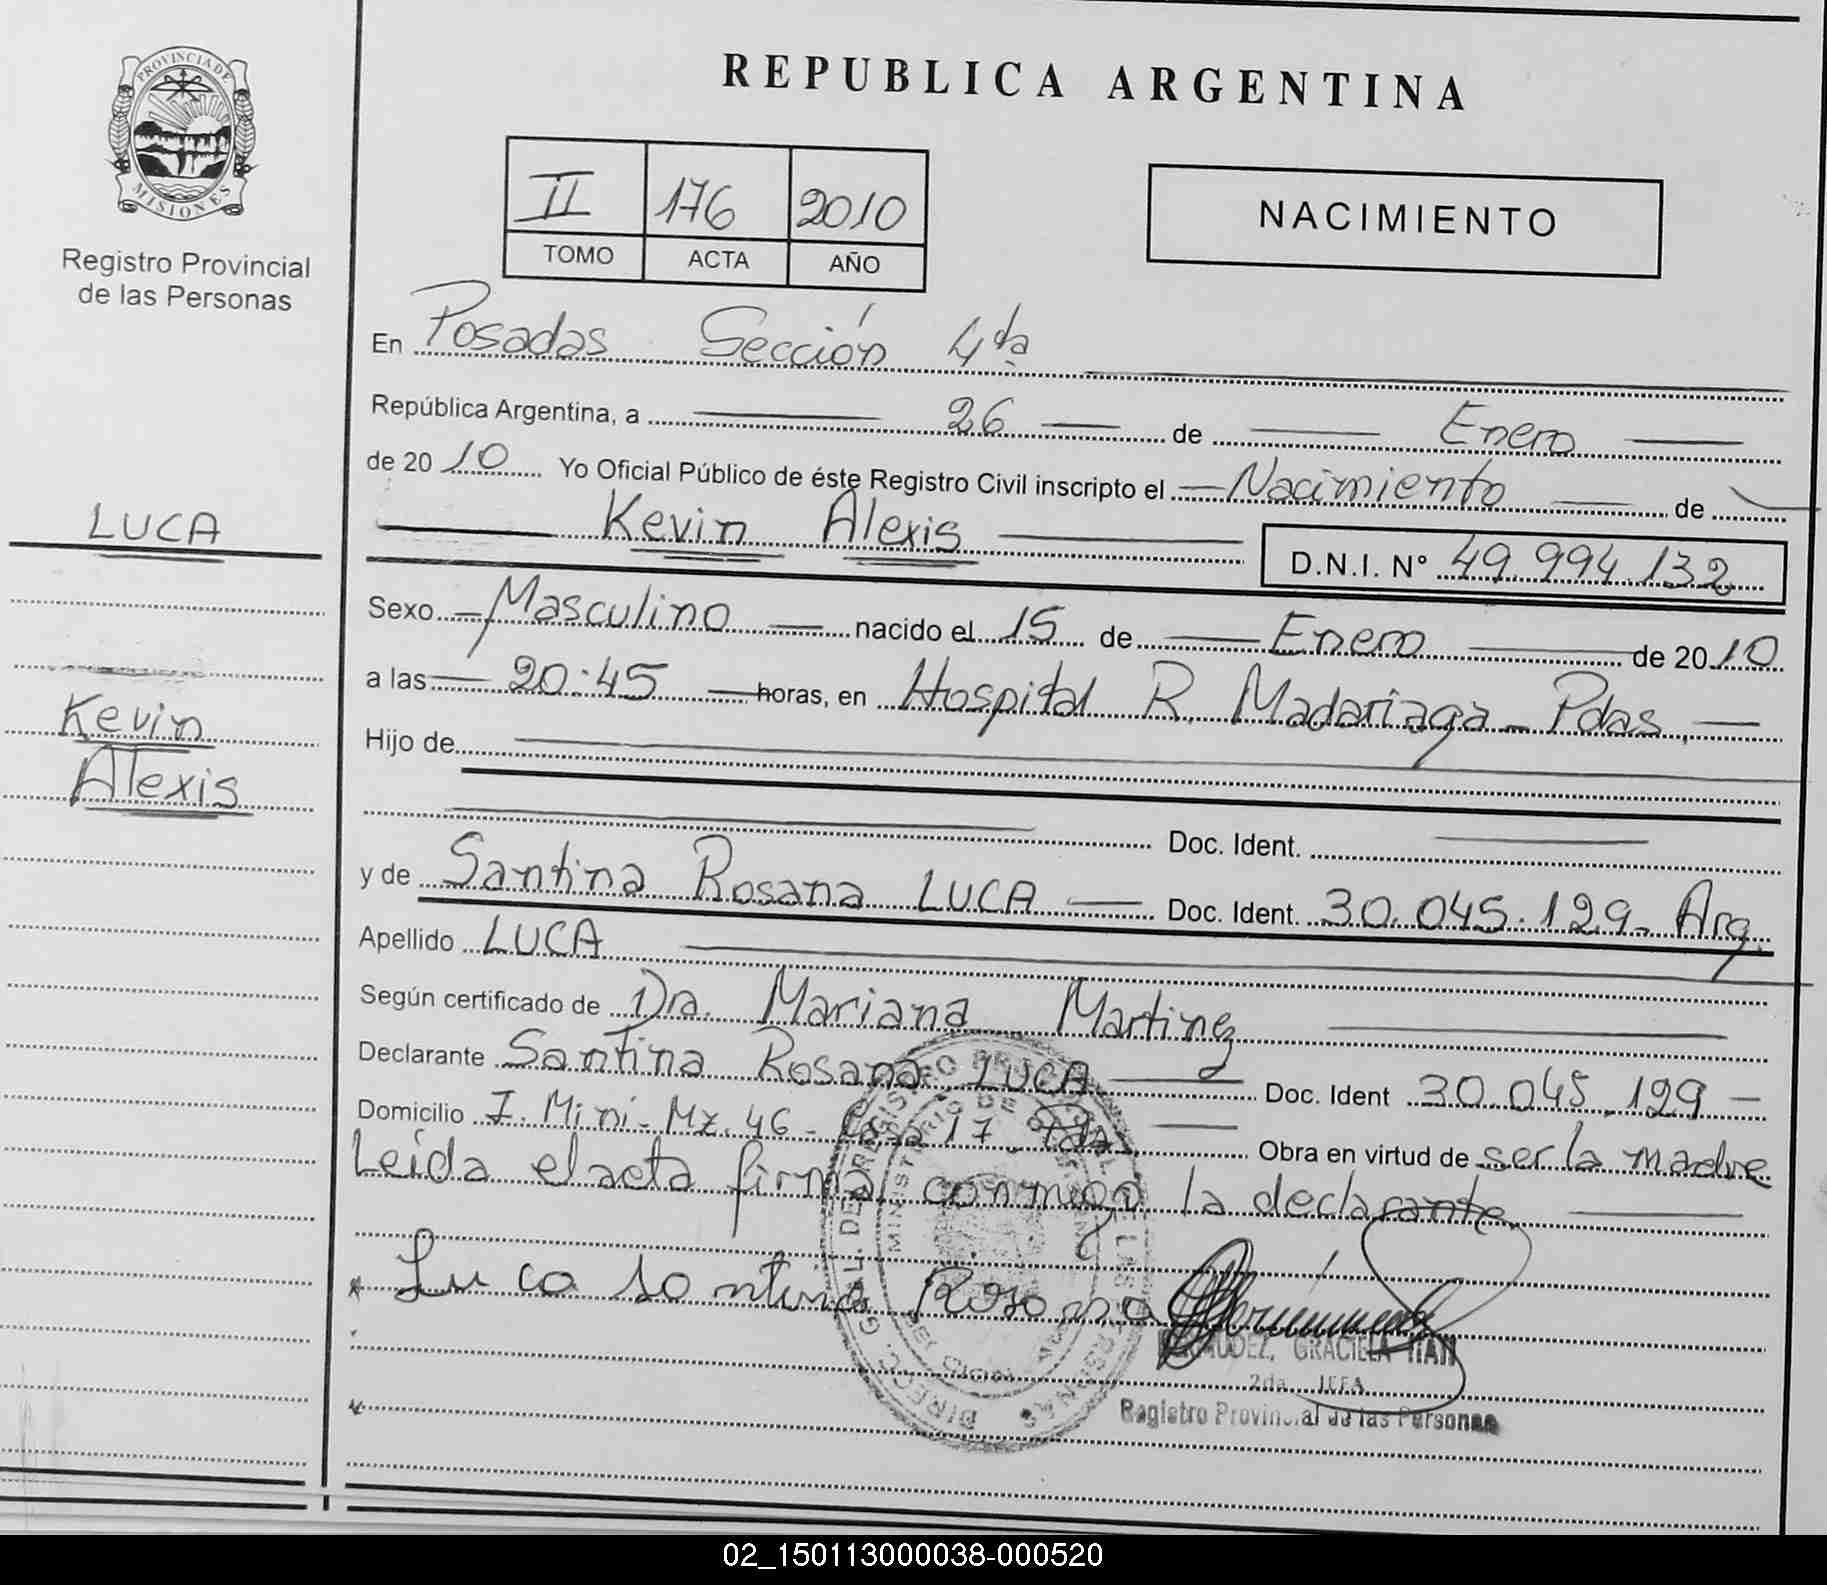 REPUBLICA ARGENTINA
PROVINCIA DE
MISIONES
Registro Provincial
de las Personas
II 176 2010
TOMO ACTA AÑO
NACIMIENTO
LUCA
Kevin
Alexis
En Posadas Sección 4ta
República Argentina, a 26 de Enero
de 2010 Yo Oficial Público de éste Registro Civil inscripto el Nacimiento de
Kevin Alexis D.N.I. Nº 49.994.132
Sexo Masculino nacido el 15 de Enero de 2010
a las 20:45 horas, en Hospital R. Madariaga - Pdas.
Hijo de
Doc. Ident.
y de Santina Rosana LUCA Doc. Ident. 30.045.129- Arg.
Apellido LUCA
Según certificado de Dra. Mariana Martinez
Declarante Santina Rosana LUCA Doc. Ident 30.045.129 -
Domicilio I. Miní - Mz. 46 - Casa 17 - Pdas. Obra en virtud de ser la madre
Leída el acta firma conmigo la declarante
Luca Santina Rosana
GRACIELA
2da. JEFA
Registro Provincial de las Personas
02_150113000038-000520